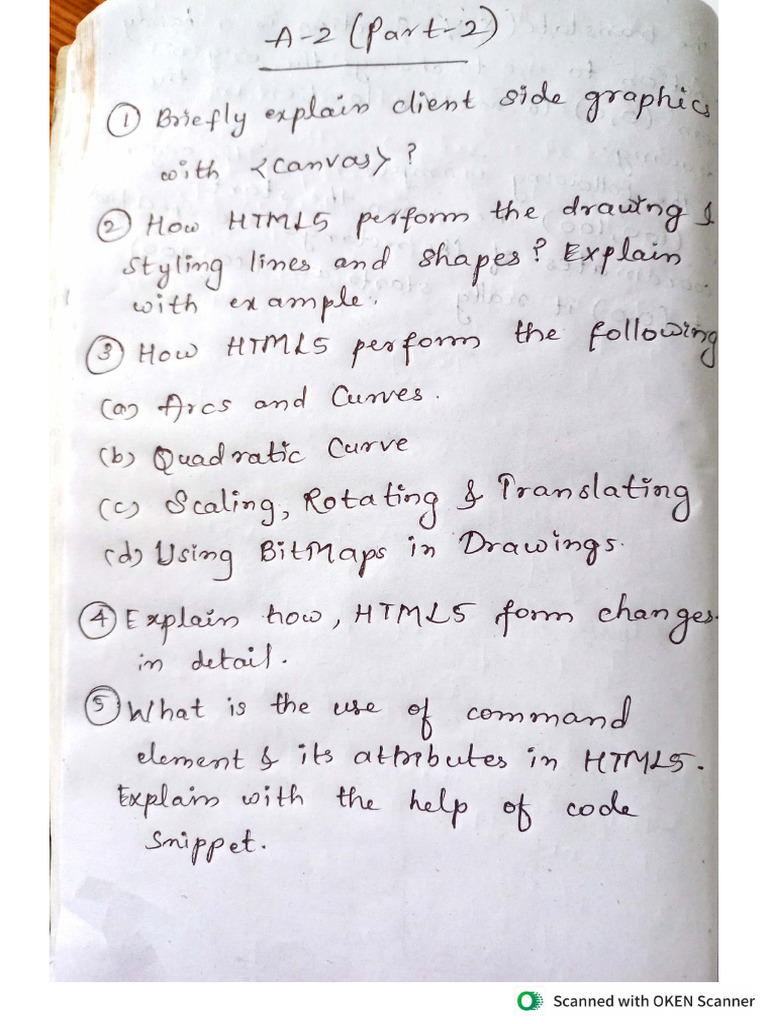 A-2 (Part-2)
① Briefly explain client side graphics
with <canvas>?
② How HTML5 perform the drawing &
styling lines and shapes? Explain
with example.
③ How HTML5 perform the following
(a) Arcs and Curves.
(b) Quadratic Curve
(c) Scaling, Rotating & Translating
(d) Using BitMaps in Drawings.
④ Explain how, HTML5 form changes.
in detail.
⑤ What is the use of command
element & its attributes in HTML5.
Explain with the help of code
Snippet.
Scanned with OKEN Scanner